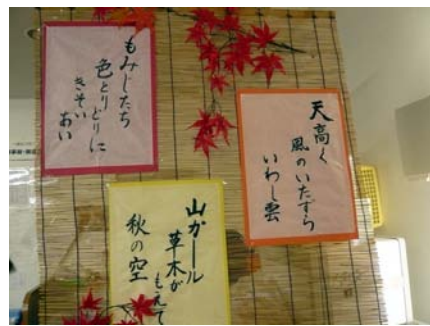 もみじたち
色とりどりに
きそい
あい
天高く
風のいたずら
いわし雲
山ガール
草木が
もえて
秋の空